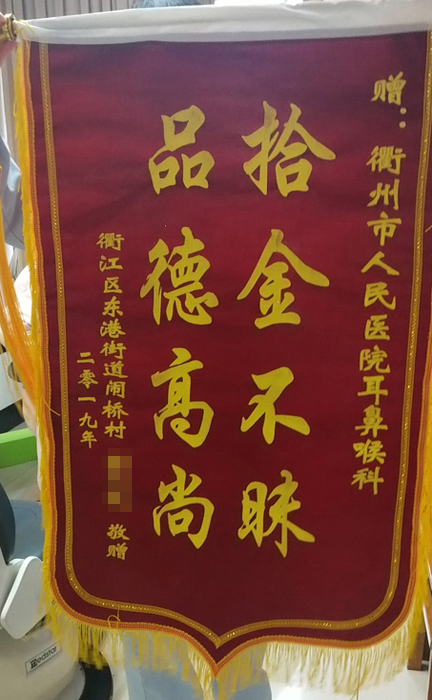 赠：衢州市人民医院耳鼻喉科
拾金不昧
品德高尚
衢江区东港街道闹桥村
敬赠
二零一九年
edstar